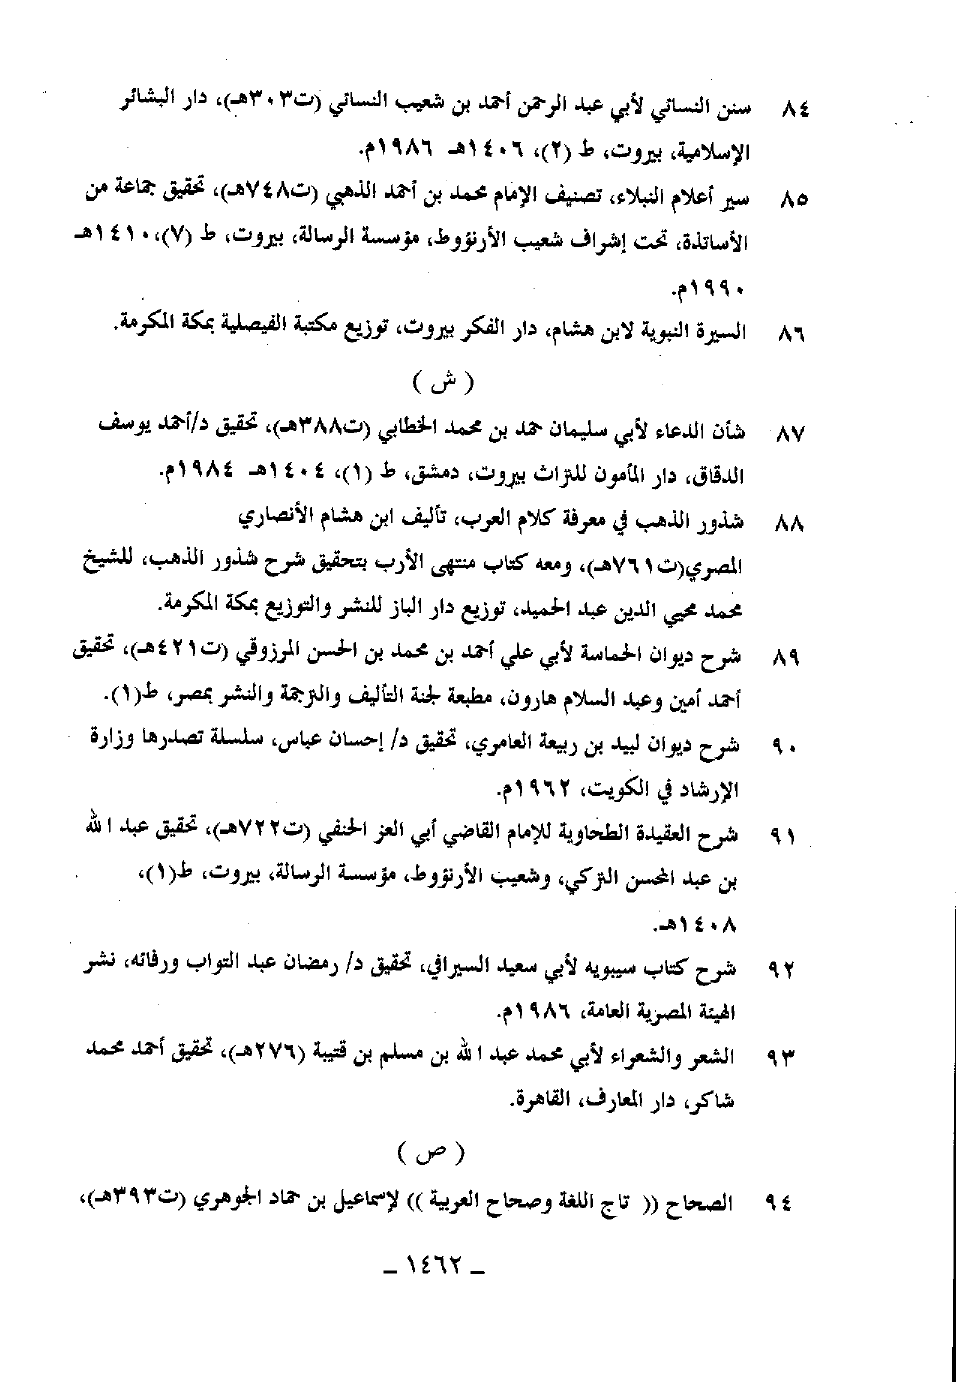 ٨٤ سنن النسائي لأبي عبد الرحمن أحمد بن شعيب النسائي (ت٣٠٣هـ)، دار البشائر
الإسلامية، بيروت، ط (٢)، ١٤٠٦هـ ١٩٨٦م.
٨٥ سير أعلام النبلاء، تصنيف الإمام محمد بن أحمد الذهبي (ت٧٤٨هـ)، تحقيق جماعة من
الأساتذة، تحت إشراف شعيب الأرنؤوط، مؤسسة الرسالة، بيروت، ط (٧)، ١٤١٠هـ
١٩٩٠م.
٨٦ السيرة النبوية لابن هشام، دار الفكر بيروت، توزيع مكتبة الفيصلية بمكة المكرمة.
( ش )
٨٧ شأن الدعاء لأبي سليمان حمد بن محمد الخطابي (ت٣٨٨هـ)، تحقيق د/أحمد يوسف
الدقاق، دار المأمون للتراث بيروت، دمشق، ط (١)، ١٤٠٤هـ ١٩٨٤م.
٨٨ شذور الذهب في معرفة كلام العرب، تأليف ابن هشام الأنصاري
المصري(ت٧٦١هـ)، ومعه كتاب منتهى الأرب بتحقيق شرح شذور الذهب، للشيخ
محمد محيي الدين عبد الحميد، توزيع دار الباز للنشر والتوزيع بمكة المكرمة.
٨٩ شرح ديوان الحماسة لأبي علي أحمد بن محمد بن الحسن المرزوقي (ت٤٢١هـ)، تحقيق
أحمد أمين وعبد السلام هارون، مطبعة لجنة التأليف والترجمة والنشر بمصر، ط(١).
٩٠ شرح ديوان لبيد بن ربيعة العامري، تحقيق د/ إحسان عباس، سلسلة تصدرها وزارة
الإرشاد في الكويت، ١٩٦٢م.
٩١ شرح العقيدة الطحاوية للإمام القاضي أبي العز الحنفي (ت٧٢٢هـ)، تحقيق عبد الله
بن عبد المحسن التركي، وشعيب الأرنؤوط، مؤسسة الرسالة، بيروت، ط(١)،
١٤٠٨هـ.
٩٢ شرح كتاب سيبويه لأبي سعيد السيرافي، تحقيق د/ رمضان عبد التواب ورفاته، نشر
الهيئة المصرية العامة، ١٩٨٦م.
٩٣ الشعر والشعراء لأبي محمد عبد الله بن مسلم بن قتيبة (٢٧٦هـ)، تحقيق أحمد محمد
شاكر، دار المعارف، القاهرة.
( ص )
٩٤ الصحاح (( تاج اللغة وصحاح العربية )) لإسماعيل بن حماد الجوهري (ت٣٩٣هـ)،
ـ ١٤٦٢ ـ